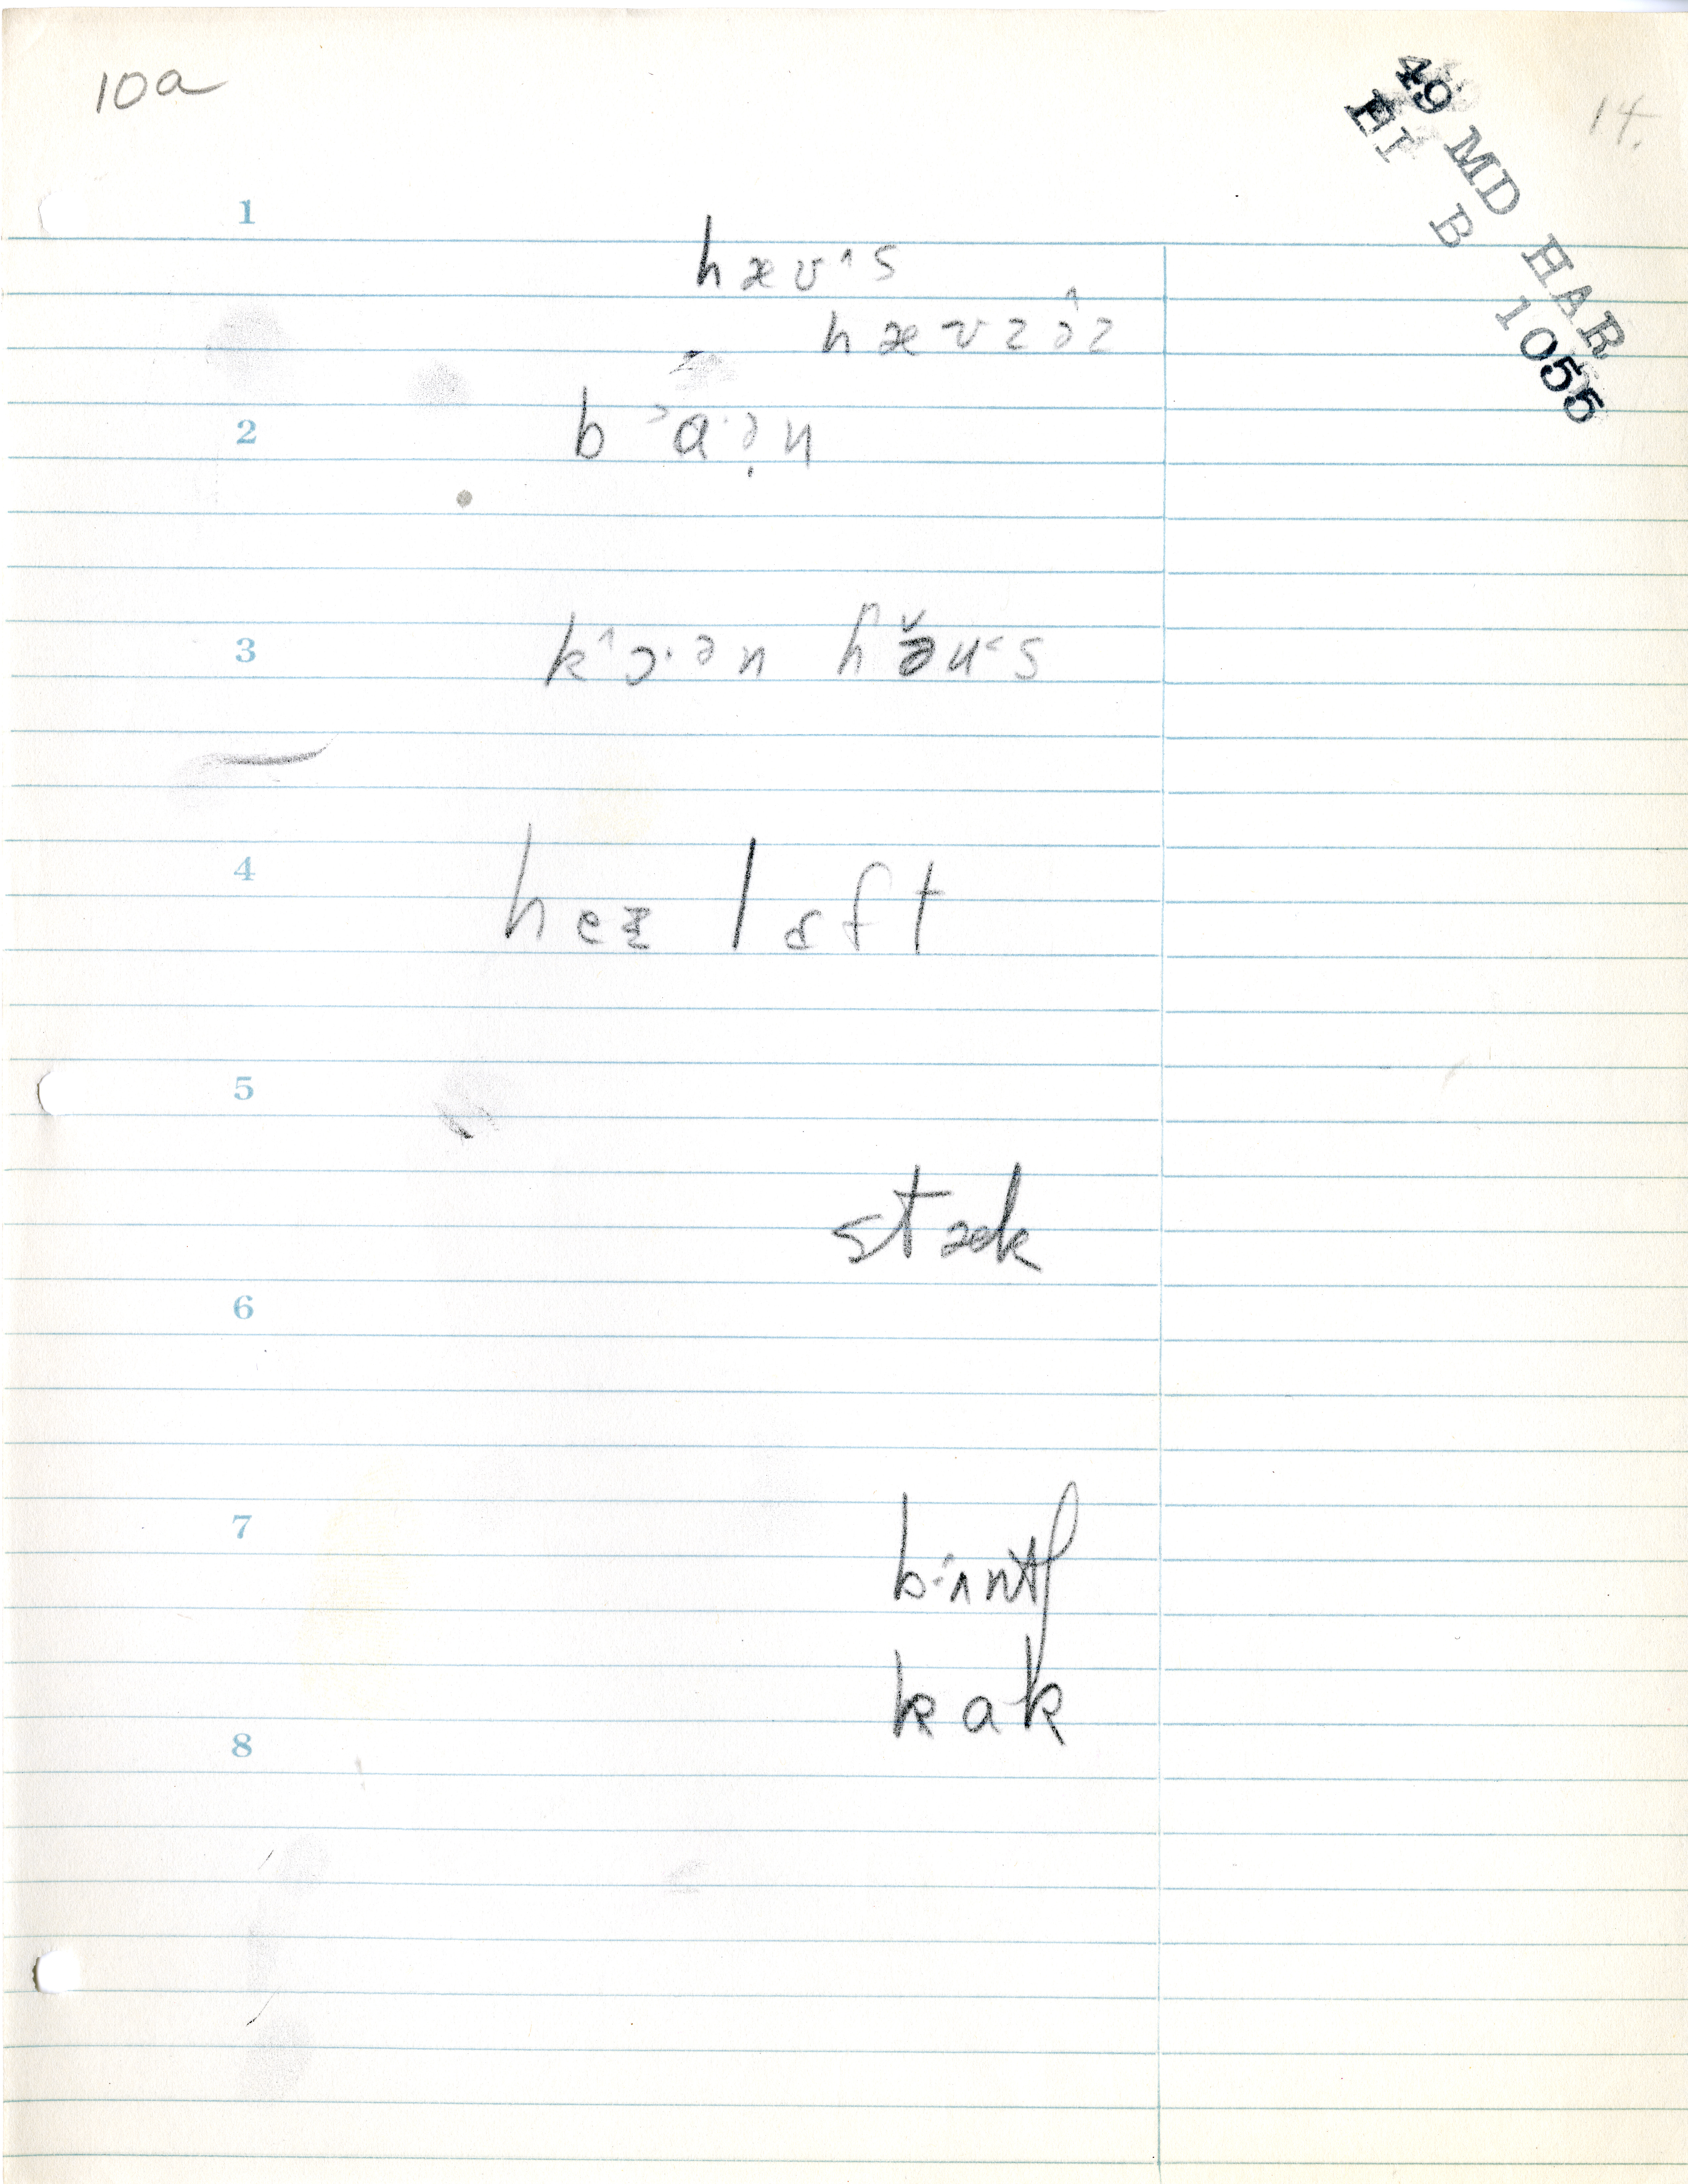 10a
14.
49 MD HAR
HI B 1055
1
hæʊ˄s
hæʊzə̂z
2
b˃a·ə̣n
3
k˄ɔ·ən hə̆u˂s
4
heɪ lɒft
5
stæk
6
7
bʌntʃ
kak
8